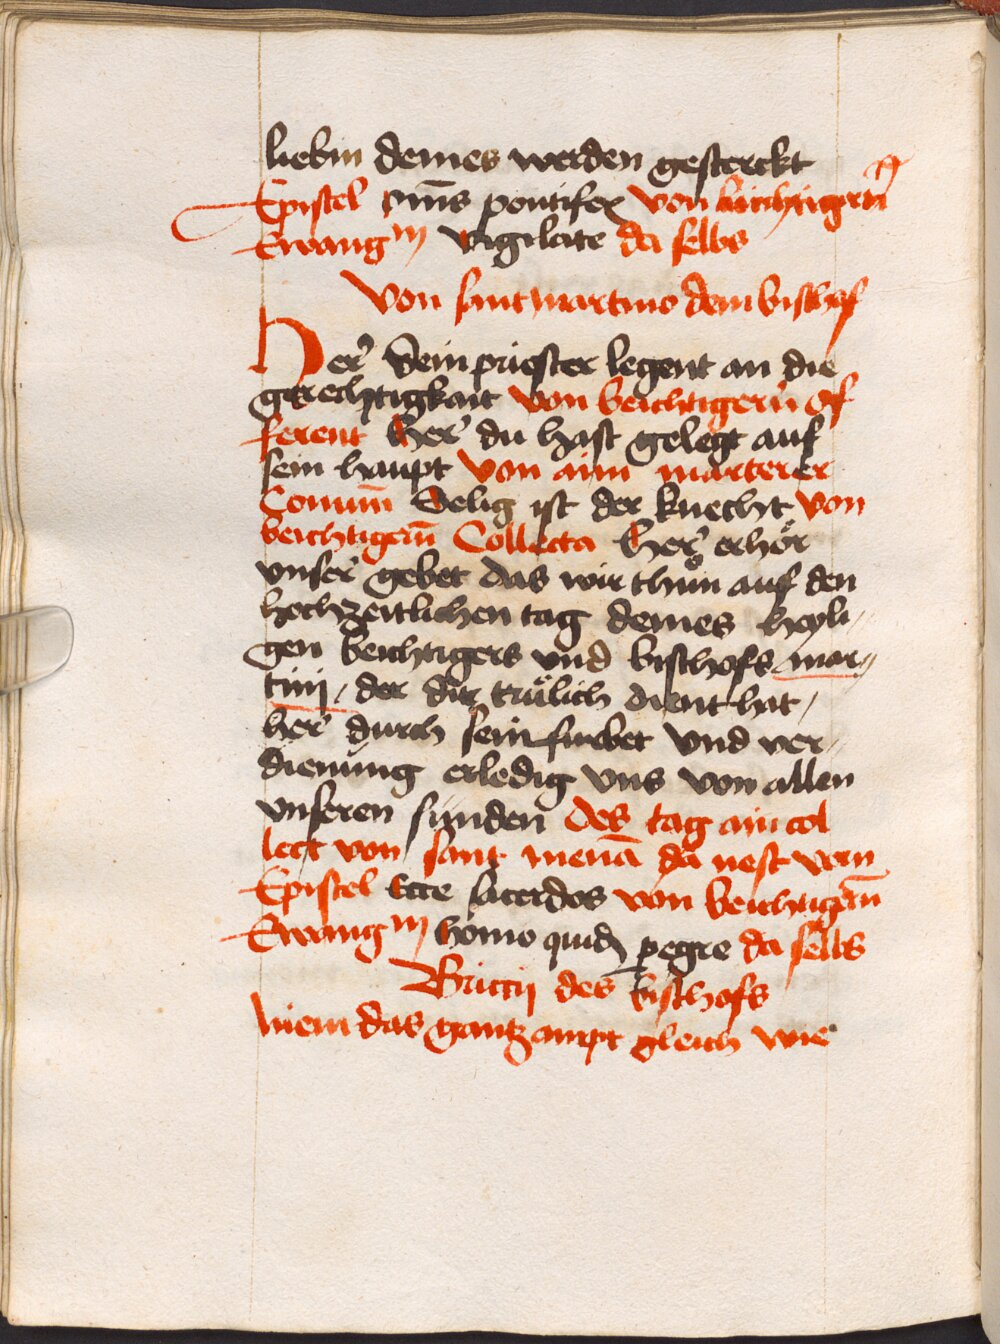 liebin deines werden gesterckt
Epistel om̄s pontifex von beichtigern̄
Ewangm vigilate da selbs
Von sant martino dem bischof
Her dein priester legent an die
gerechtigkait von beichtigern̄ of
ferent Her du hast gelegt auf
sein haupt von aim marterer
Comun̄ Selig ist der knecht von
beichtigern̄ Collecta Her erhör
vnser gebet das wir thůn auf den
hochzeitlichen tag deines heyli//
gen beichtigers vnd bischofs mar//
tinj / der dir trülich dient hat /
her durch sein furbet vnd ver//
dienung erledig vns von allen
vnseren sünden des tag ain col
lect von sant menā da nest vorn
Epistel Ecce sacerdos von beichtigern̄
Ewangm homo quidā pegre da selbs
Briccij des bischofs
Niem das gantz ampt gleich wie